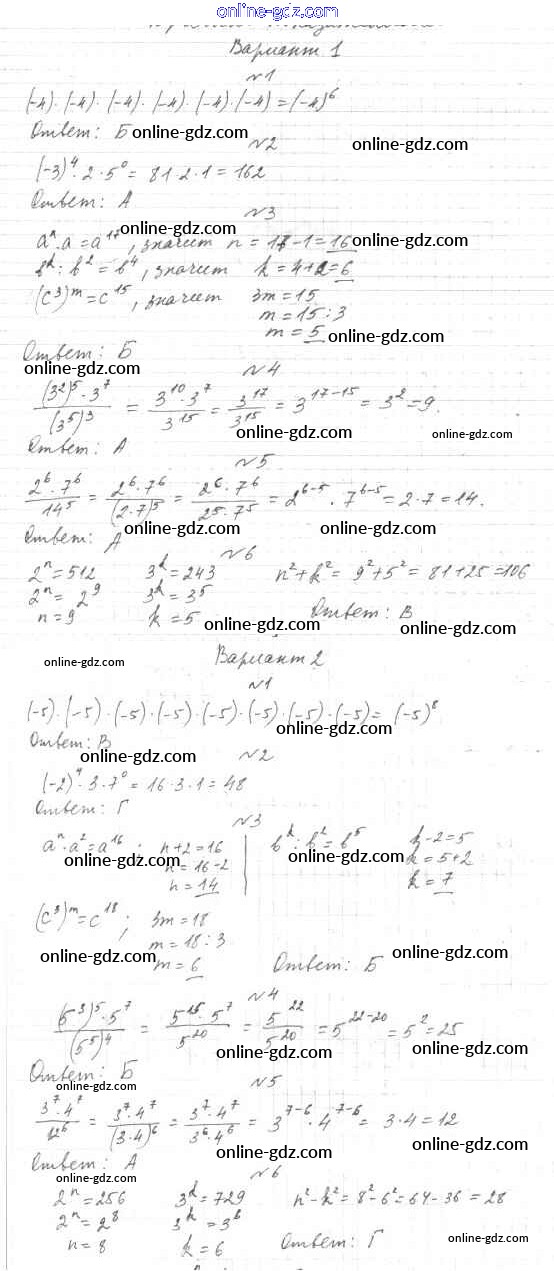 online-gdz.com
Вариант 1
№1
(-4)·(-4)·(-4)·(-4)·(-4)·(-4)=(-4)⁶
Ответ: Б online-gdz.com online-gdz.com
№2
(-3)⁴·2·5⁰=81·2·1=162
Ответ: А
online-gdz.com
№3
aⁿ·a=a¹⁷, значит n=17-1=16 online-gdz.com
bᵏ:b²=b⁴, значит k=4+2=6
online-gdz.com
(c³)ᵐ=c¹⁵, значит 3m=15
m=15:3
m=5 online-gdz.com
Ответ: Б
online-gdz.com
№4
(3²)⁵·3⁷/(3⁵)³ = 3¹⁰·3⁷/3¹⁵ = 3¹⁷/3¹⁵ = 3¹⁷⁻¹⁵=3²=9.
online-gdz.com online-gdz.com
Ответ: А
№5
2⁶·7⁶/14⁵ = 2⁶·7⁶/(2·7)⁵ = 2⁶·7⁶/25·7⁵ = 2⁶⁻⁵·7⁶⁻⁵=2·7=14.
online-gdz.com online-gdz.com
Ответ: А
№6
2ⁿ=512 3ᵏ=243 n²+k²=9²+5²=81+25=106
2ⁿ=2⁹ 3ᵏ=3⁵
n=9 k=5 Ответ: В
online-gdz.com online-gdz.com
online-gdz.com Вариант 2
№1
(-5)·(-5)·(-5)·(-5)·(-5)·(-5)·(-5)·(-5)=(-5)⁸
online-gdz.com
Ответ: В
online-gdz.com online-gdz.com
№2
(-2)⁴·3·7⁰=16·3·1=48
Ответ: Г
№3
aⁿ·a²=a¹⁶; n+2=16 bᵏ:b²=b⁵ k-2=5
online-gdz.com n=16-2 online-gdz.com k=5+2
n=14 k=7
(c³)ᵐ=c¹⁸; 3m=18
m=18:3
online-gdz.com m=6 Ответ: Б online-gdz.com
№4
(5³)⁵·5⁷/(5⁵)⁴ = 5¹⁵·5⁷/5²⁰ = 5²²/5²⁰ =5²²⁻²⁰=5²=25
online-gdz.com online-gdz.com
Ответ: Б
online-gdz.com
№5
3⁷·4⁷/12⁶ = 3⁷·4⁷/(3·4)⁶ = 3⁷·4⁷/3⁶·4⁶ = 3⁷⁻⁶·4⁷⁻⁶=3·4=12
online-gdz.com online-gdz.com
Ответ: А
online-gdz.com
№6
2ⁿ=256 3ᵏ=729 n²-k²=8²-6²=64-36=28
2ⁿ=2⁸ 3ᵏ=3⁶
n=8 k=6 Ответ: Г online-gdz.com
online-gdz.com